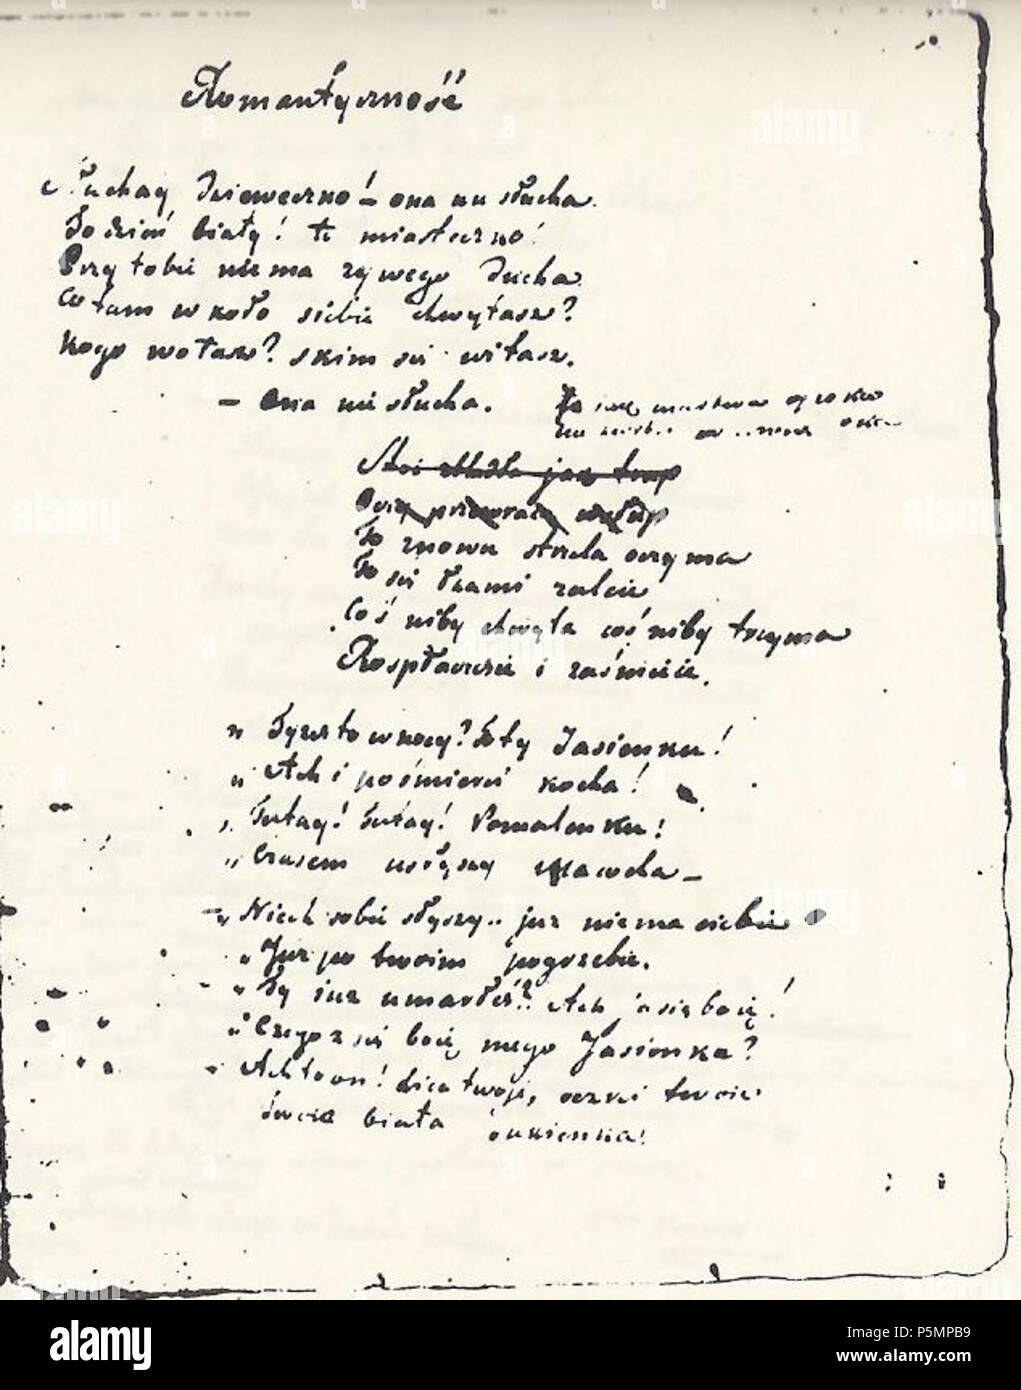 Romantyczność
Słuchay Dzieweczko! – ona nie słucha.
To dzień biały! to miasteczko!
Przy tobie niema żywego Ducha
Co tam wkoło siebie chwytasz?
Kogo wołasz? zkim się witasz.
– Ona nie słucha.
To iak martwa opoka
To znowu strzela oczyma
To się łzami zaleie
Coś niby chwyta coś niby trzyma
Rospłacze się i zaśmieie.
„ Tyżeś to w nocy? To ty Jasieńku!
„ Ach i pośmierci kocha!
„ Tutay! tutay! Pomaleńku!
„ Czasem usłyszy Macocha –
„ Niech sobie słyszy.. już niema ciebie
„ Już po twoim pogrzebie.
„ Ty iuż umarłeś? Ach ja się boię!
„ Czego się boię mego Jasieńka?
„ Ach to on! lica twoje, oczki twoie
twoia biała sukienka!
alamy
alamy
Image ID: P5MPB9
www.alamy.com